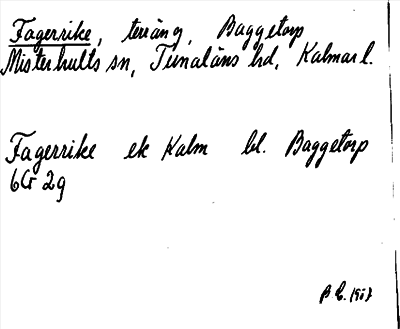 Fagerrike, terräng, Baggetorp
Misterhults sn, Tunaläns hd, Kalmar l.
Fagerrike ek Kalm bl. Baggetorp
6G 2g